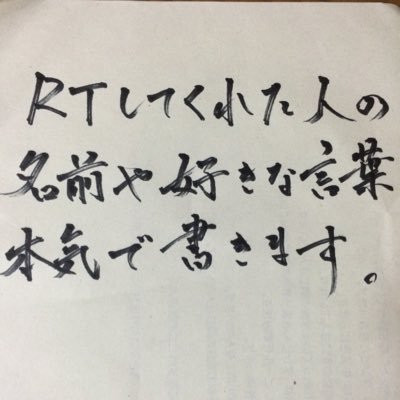 RTしてくれた人の
名前や好きな言葉
本気で書きます。